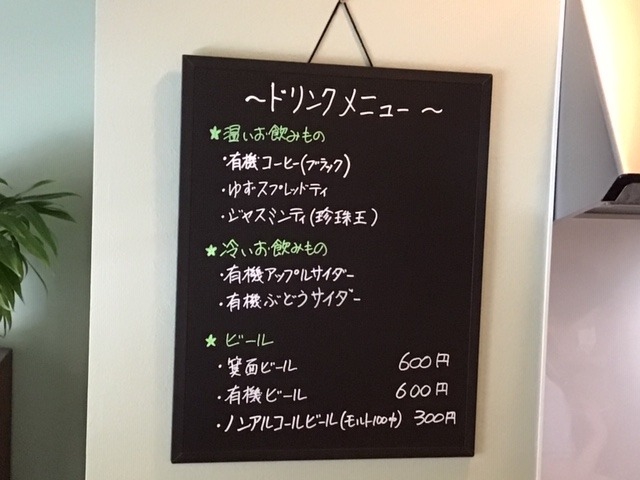 ～ドリンクメニュー～
★温いお飲みもの
・有機コーヒー(ブラック)
・ゆずスプレッドティ
・ジャスミンティ(珍珠王)
★冷いお飲みもの
・有機アップルサイダー
・有機ぶどうサイダー
★ビール
・箕面ビール 600円
・有機ビール 600円
・ノンアルコールビール(モルト100%) 300円